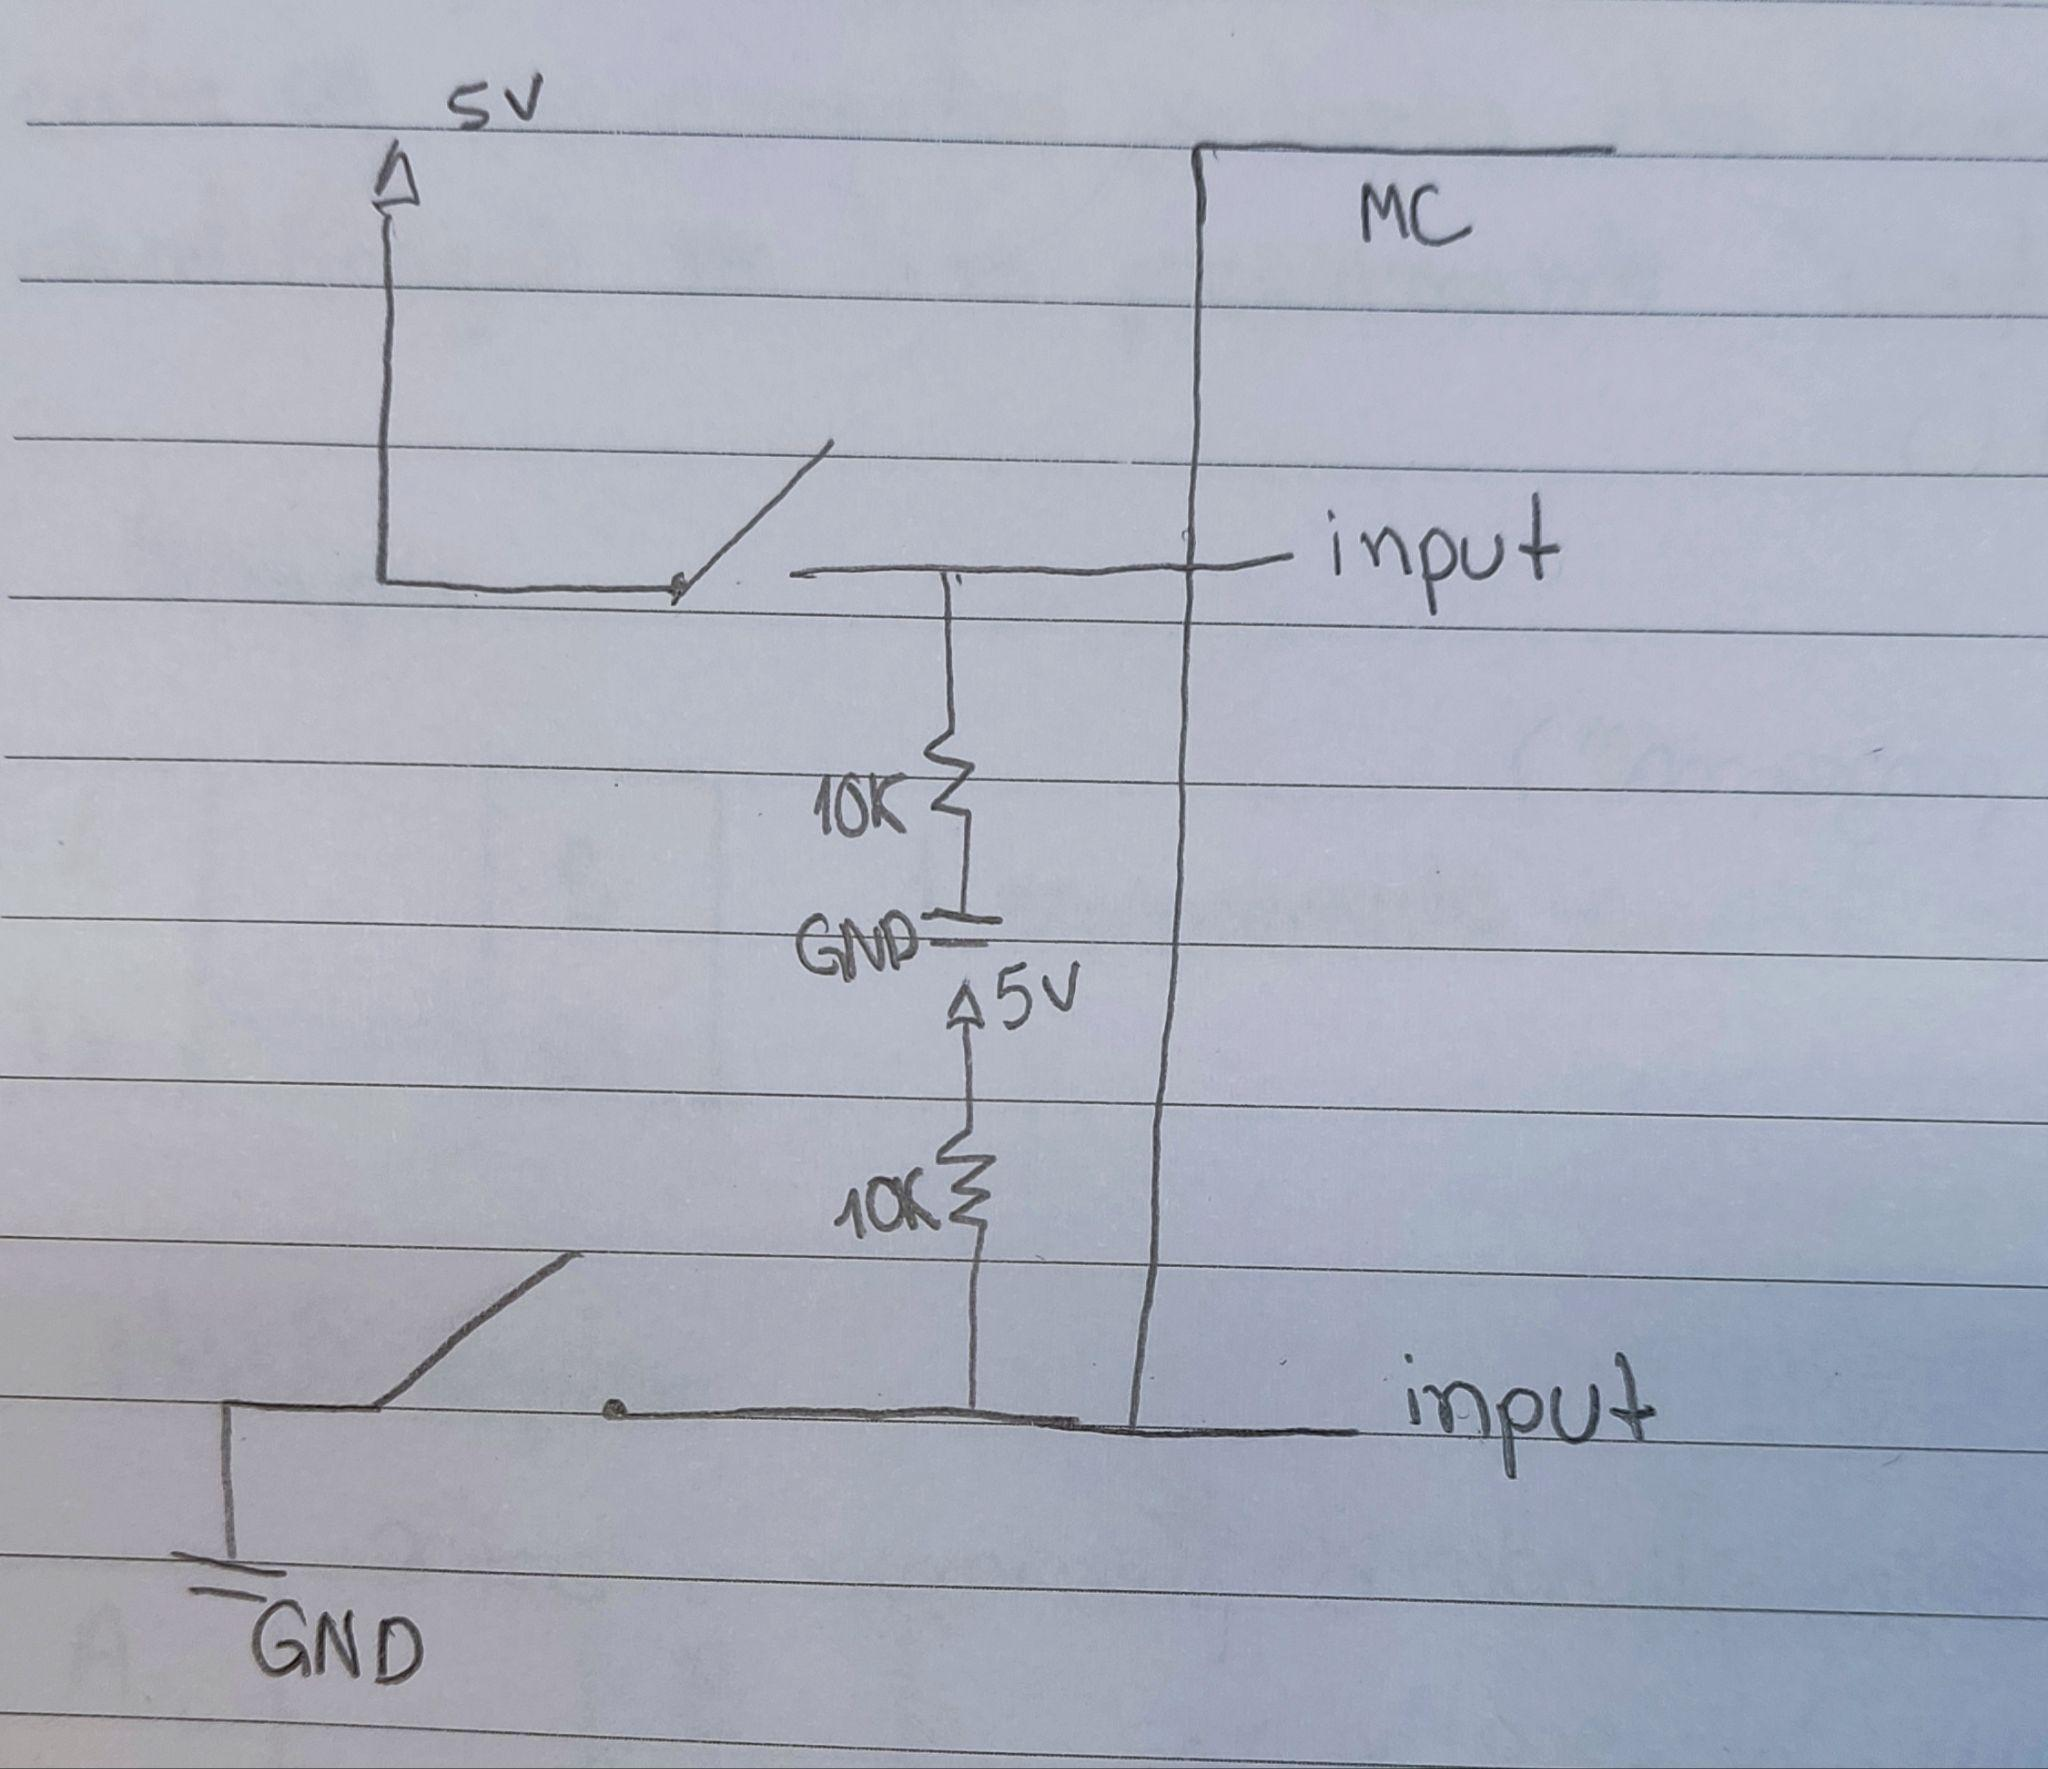 5V
MC
input
10K
GND
5V
10K
input
GND